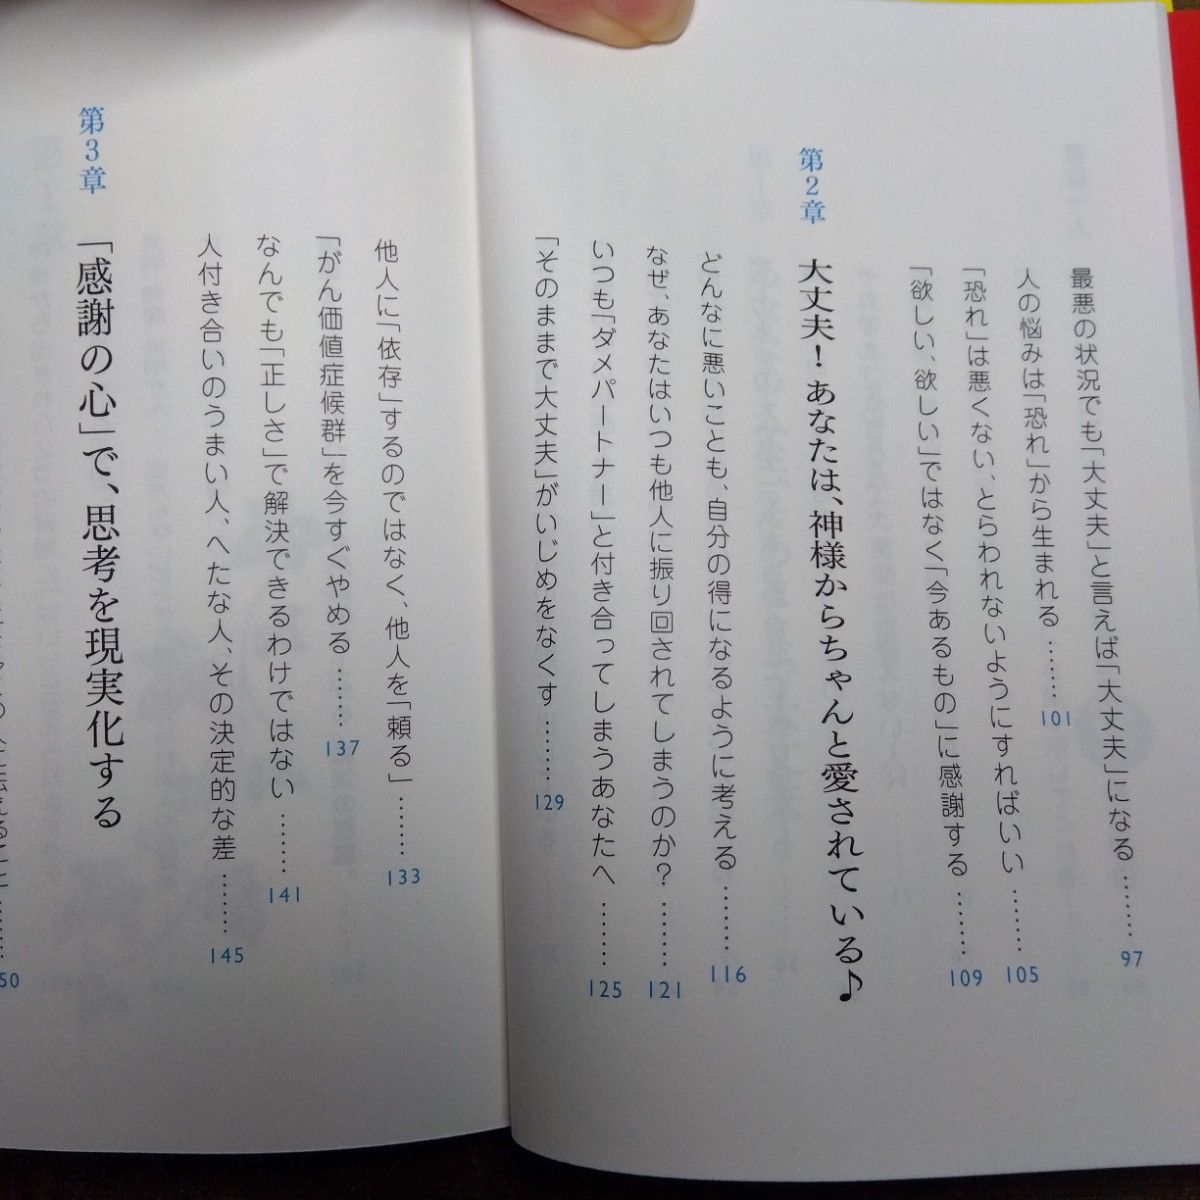 最悪の状況でも「大丈夫」と言えば「大丈夫」になる ……… 97
人の悩みは「恐れ」から生まれる ……… 101
「恐れ」は悪くない、とらわれないようにすればいい ……… 105
「欲しい、欲しい」ではなく「今あるもの」に感謝する ……… 109
第2章 大丈夫！あなたは、神様からちゃんと愛されている♪
どんなに悪いことも、自分の得になるように考える ……… 116
なぜ、あなたはいつも他人に振り回されてしまうのか？ ……… 121
いつも「ダメパートナー」と付き合ってしまうあなたへ ……… 125
「そのままで大丈夫」がいじめをなくす ……… 129
他人に「依存」するのではなく、他人を「頼る」 ……… 133
「がん価値症候群」を今すぐやめる ……… 137
なんでも「正しさ」で解決できるわけではない ……… 141
人付き合いのうまい人、へたな人、その決定的な差 ……… 145
第3章 「感謝の心」で、思考を現実化する
人に伝えること ……… 50